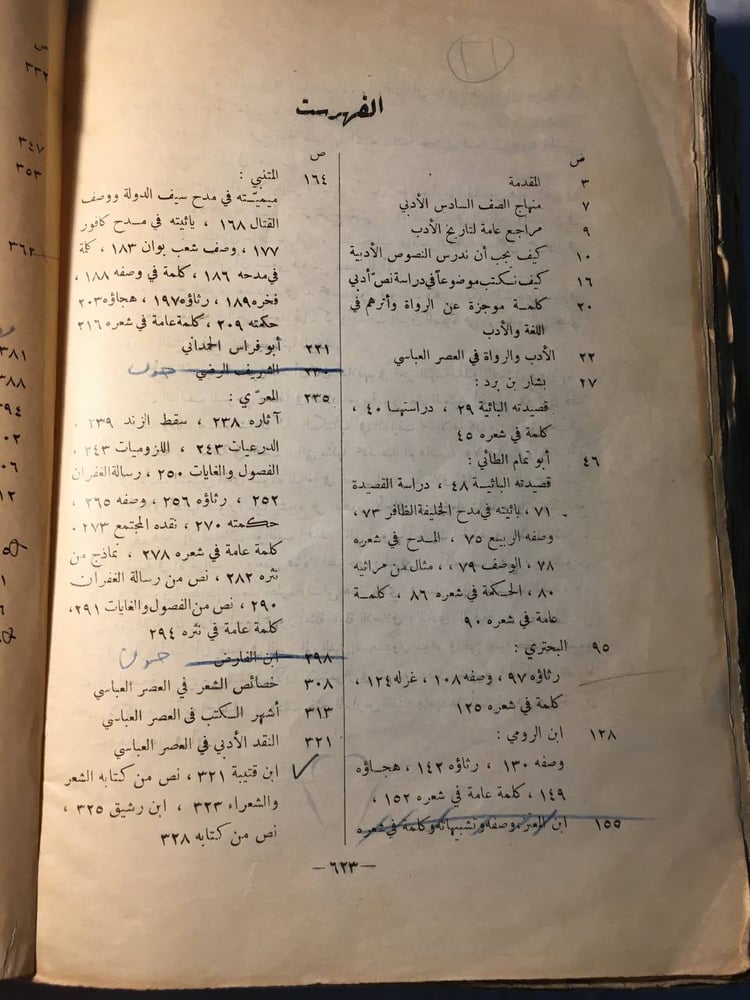 الفهرست
ص
٣ المقدمة
٧ منهاج الصف السادس الأدبي
٩ مراجع عامة لتاريخ الأدب
١٠ كيف يجب أن ندرس النصوص الأدبية
١٦ كيف نكتب موضوعاً في دراسة نصّ أدبي
٢٠ كلمة موجزة عن الرواة وأثرهم في
اللغة والأدب
٢٢ الأدب والرواة في العصر العباسي
٢٧ بشار بن برد :
قصيدته البائية ٢٩ ، دراستها ٤٠ ،
كلمة في شعره ٤٥
٤٦ أبو تمام الطائي :
قصيدته البائية ٤٨ ، دراسة القصيدة
٧١ ، بائيته في مدح الخليفة الظافر ٧٣ ،
وصفه الربيع ٧٥ ، المدح في شعره
٧٨ ، الوصف ٧٩ ، ، مثال من مراثيه
٨٠ ، الحكمة في شعره ٨٦ ، كلمة
عامة في شعره ٩٠
٩٥ البحتري :
رثاؤه ٩٧ ، وصفه ١٠٨ ، غزله ١٢٤ ،
كلمة في شعره ١٢٥
١٢٨ ابن الرومي :
وصفه ١٣٠ ، رثاؤه ١٤٢ ، هجاؤه
١٤٩ ، كلمة عامة في شعره ١٥٢ ،
١٥٥ ابن المعتز، وصفه وتشبيهاته وكلمة في شعره
ص
١٦٤ المتنبي :
ميميّته في مدح سيف الدولة ووصف
القتال ١٦٨ ، يائيته في مدح كافور
١٧٧ ، وصف شعب بوان ١٨٣ ، كلمة
في مدحه ١٨٦ ، كلمة في وصفه ١٨٨ ،
فخره ١٨٩ ، رثاؤه ١٩٧ ، هجاؤه ٢٠٣
حكمته ٢٠٩ ، كلمة عامة في شعره ٢١٦
٢٢١ أبو فراس الحمداني
٢٣٠ الشريف الرضي
٢٣٥ المعرّي :
آثاره ٢٣٨ ، سقط الزند ٢٣٩ ،
الدرعيات ٢٤٣ ، اللزوميات ٢٤٣ ،
الفصول والغايات ٢٥٠ ، رسالة الغفران
٢٥٢ ، رثاؤه ٢٥٦ ، وصفه ٢٦٥ ،
حكمته ٢٧٠ ، نقده المجتمع ٢٧٣ ،
كلمة عامة في شعره ٢٧٨ ، نماذج من
نثره ٢٨٢ ، نص من رسالة الغفران
٢٩٠ ، نص من الفصول والغايات ٢٩١ ،
كلمة عامة في نثره ٢٩٤
٢٩٨ ابن الفارض
٣٠٨ خصائص الشعر في العصر العباسي
٣١٣ أشهر الكتب في العصر العباسي
٣٢١ النقد الأدبي في العصر العباسي
ابن قتيبة ٣٢١ ، نص من كتابه الشعر
والشعراء ٣٢٣ ، ابن رشيق ٣٢٥ ،
نص من كتابه ٣٢٨
— ٦٢٣ —